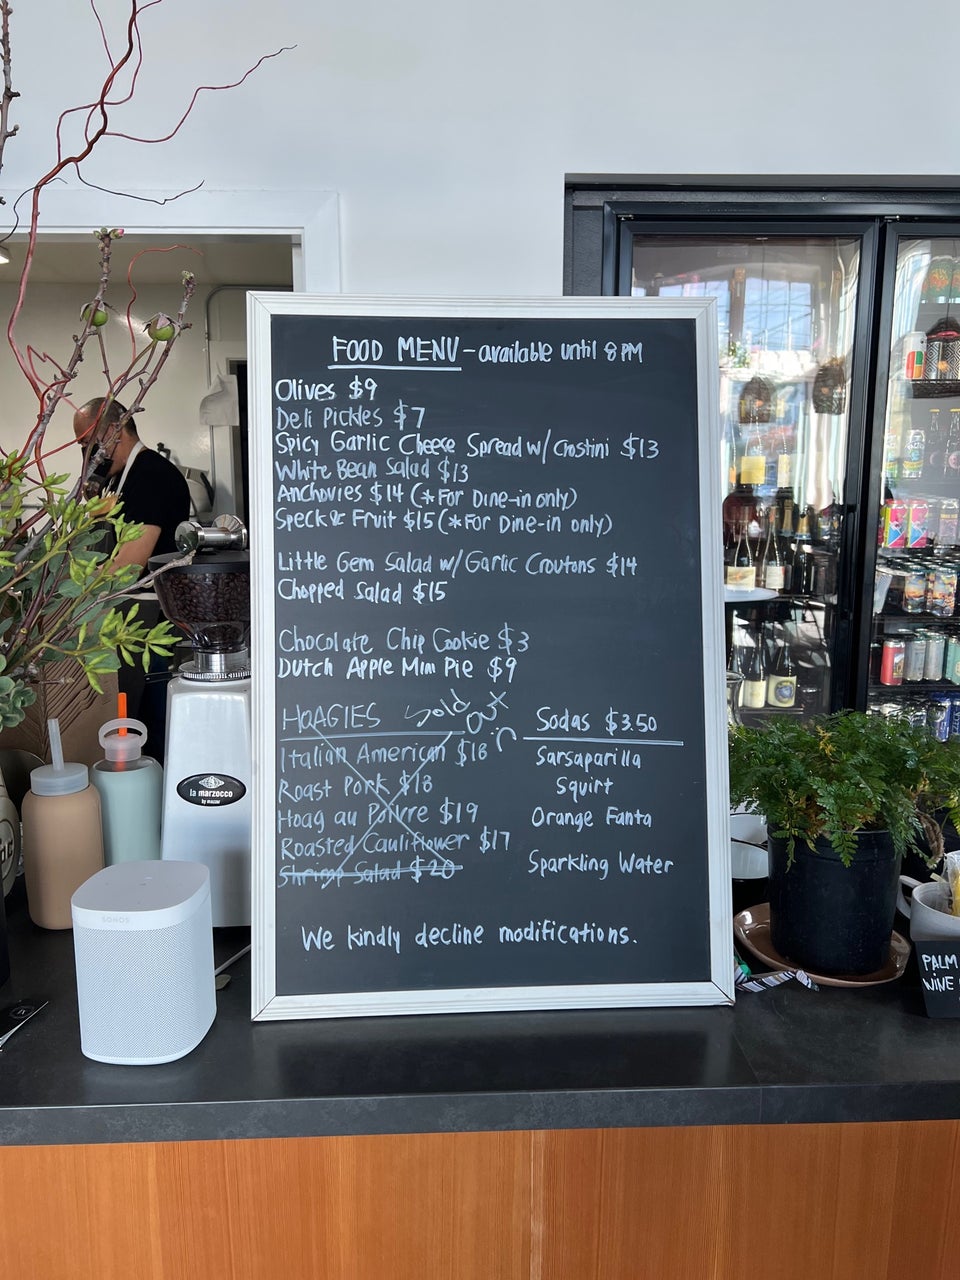 FOOD MENU - available until 8 PM
Olives $9
Deli Pickles $7
Spicy Garlic Cheese Spread w/ Crostini $13
White Bean Salad $13
Anchovies $14 (*For Dine-in only)
Speck & Fruit $15 (*For Dine-in only)
Little Gem Salad w/ Garlic Croutons $14
Chopped Salad $15
Chocolate Chip Cookie $3
Dutch Apple Mini Pie $9
HOAGIES Sold Out :C
Italian American $18
Roast Pork $18
Hoag au Poivre $19
Roasted Cauliflower $17
Shrimp Salad $20
Sodas $3.50
Sarsaparilla
Squirt
Orange Fanta
Sparkling Water
We kindly decline modifications.
la marzocco
by mazzer
SONOS
PALM
WINE